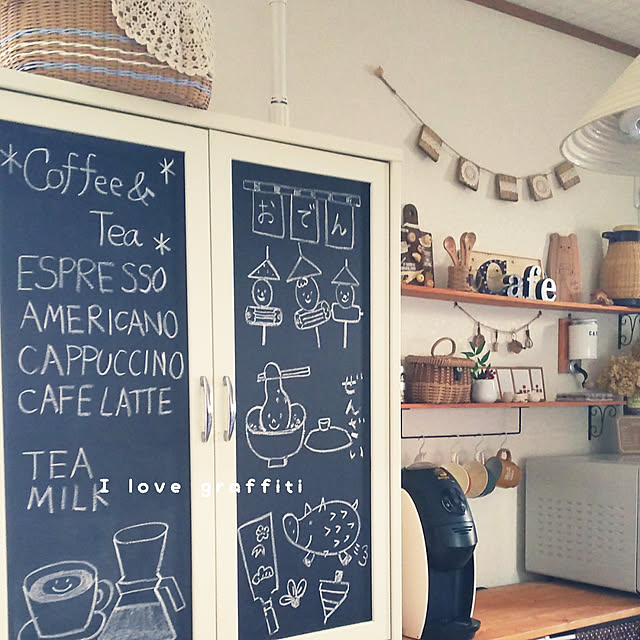 Coffee &
Tea
ESPRESSO
AMERICANO
CAPPUCCINO
CAFE LATTE
TEA
MILK
おでん
ぜんざい
I love graffiti
Cafe